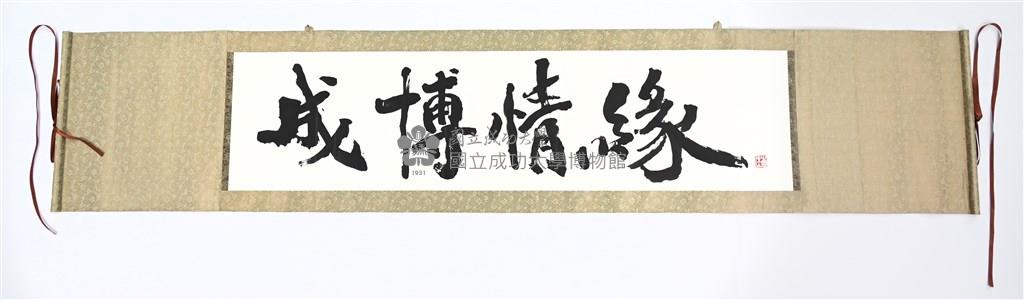 成博情緣
國立成功大學
國立成功大學博物館
1931